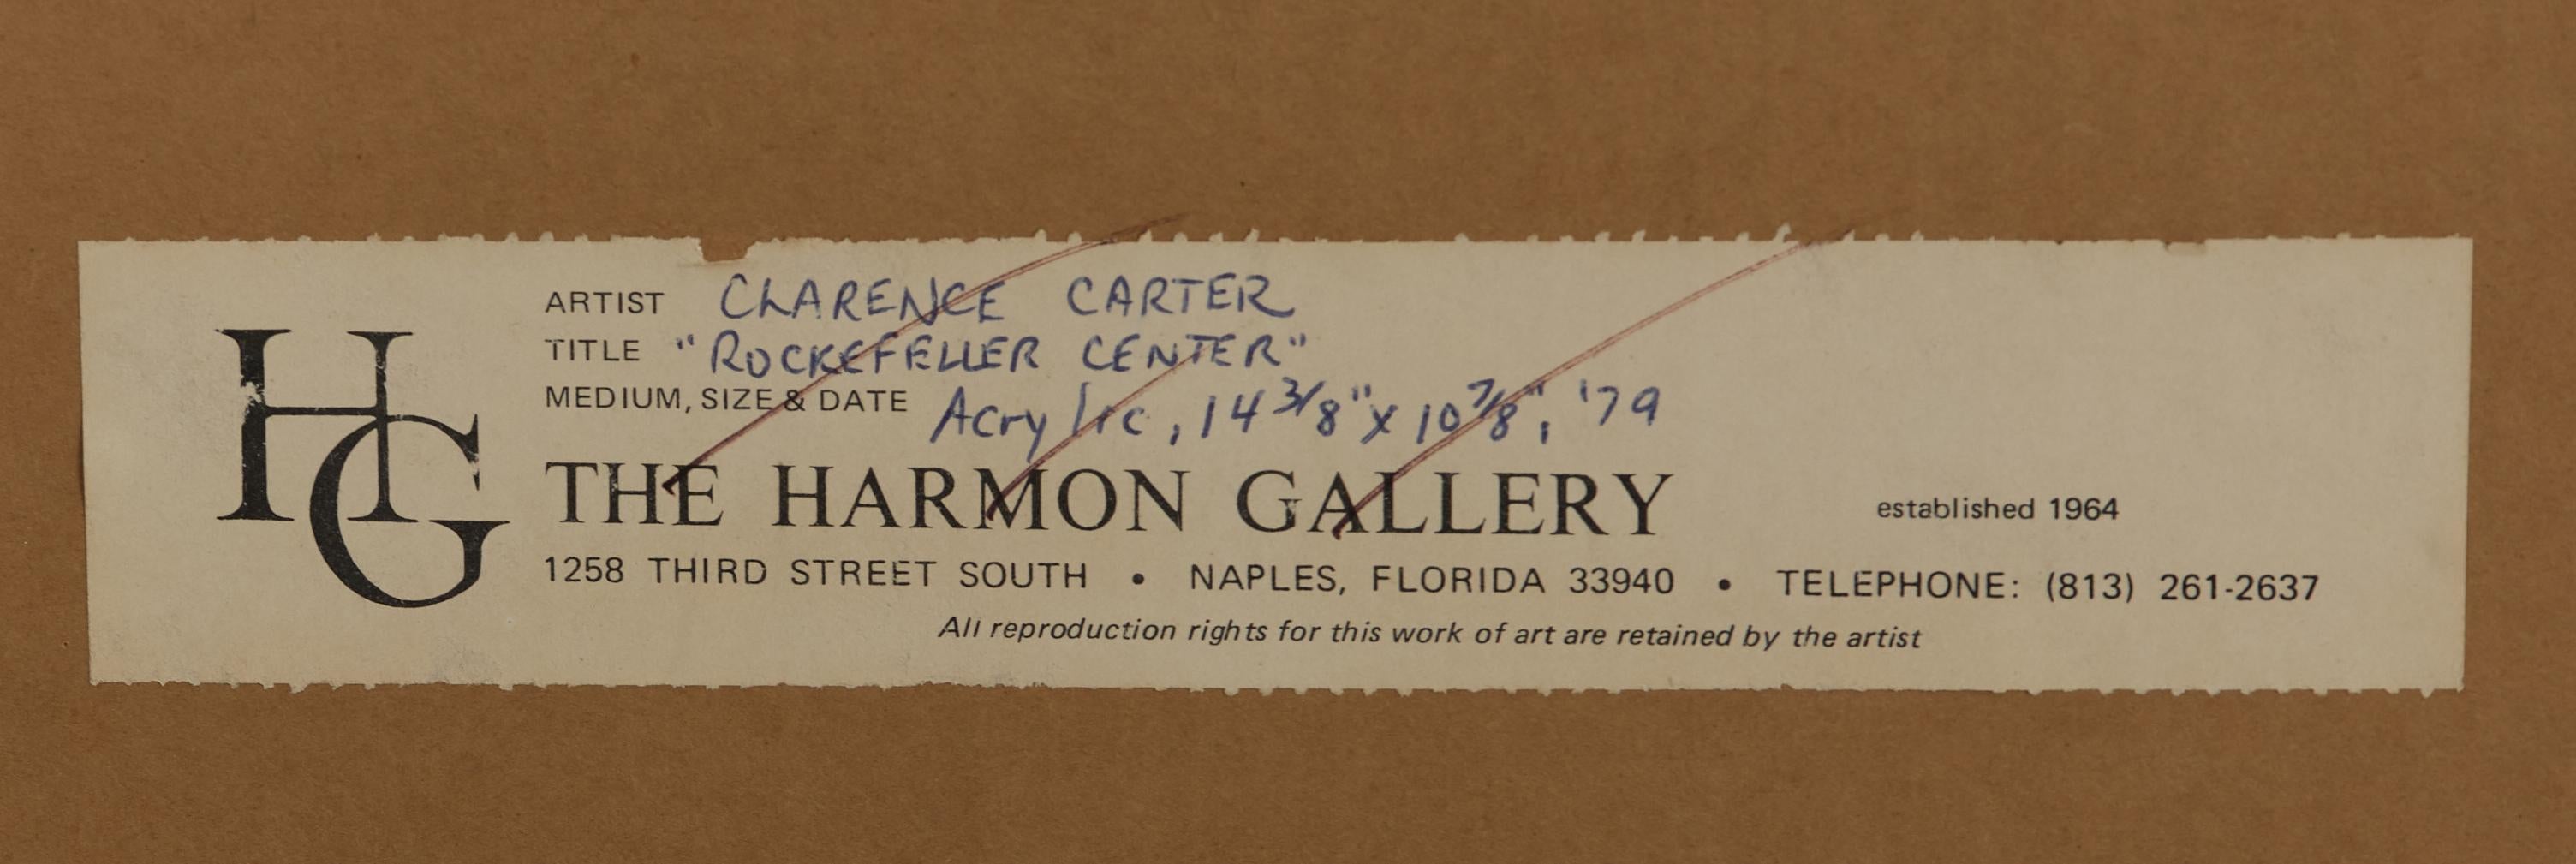 HG
ARTIST CLARENCE CARTER
TITLE "ROCKEFELLER CENTER"
MEDIUM, SIZE & DATE Acrylic, 14 3/8" x 10 7/8", '79
THE HARMON GALLERY established 1964
1258 THIRD STREET SOUTH • NAPLES, FLORIDA 33940 • TELEPHONE: (813) 261-2637
All reproduction rights for this work of art are retained by the artist